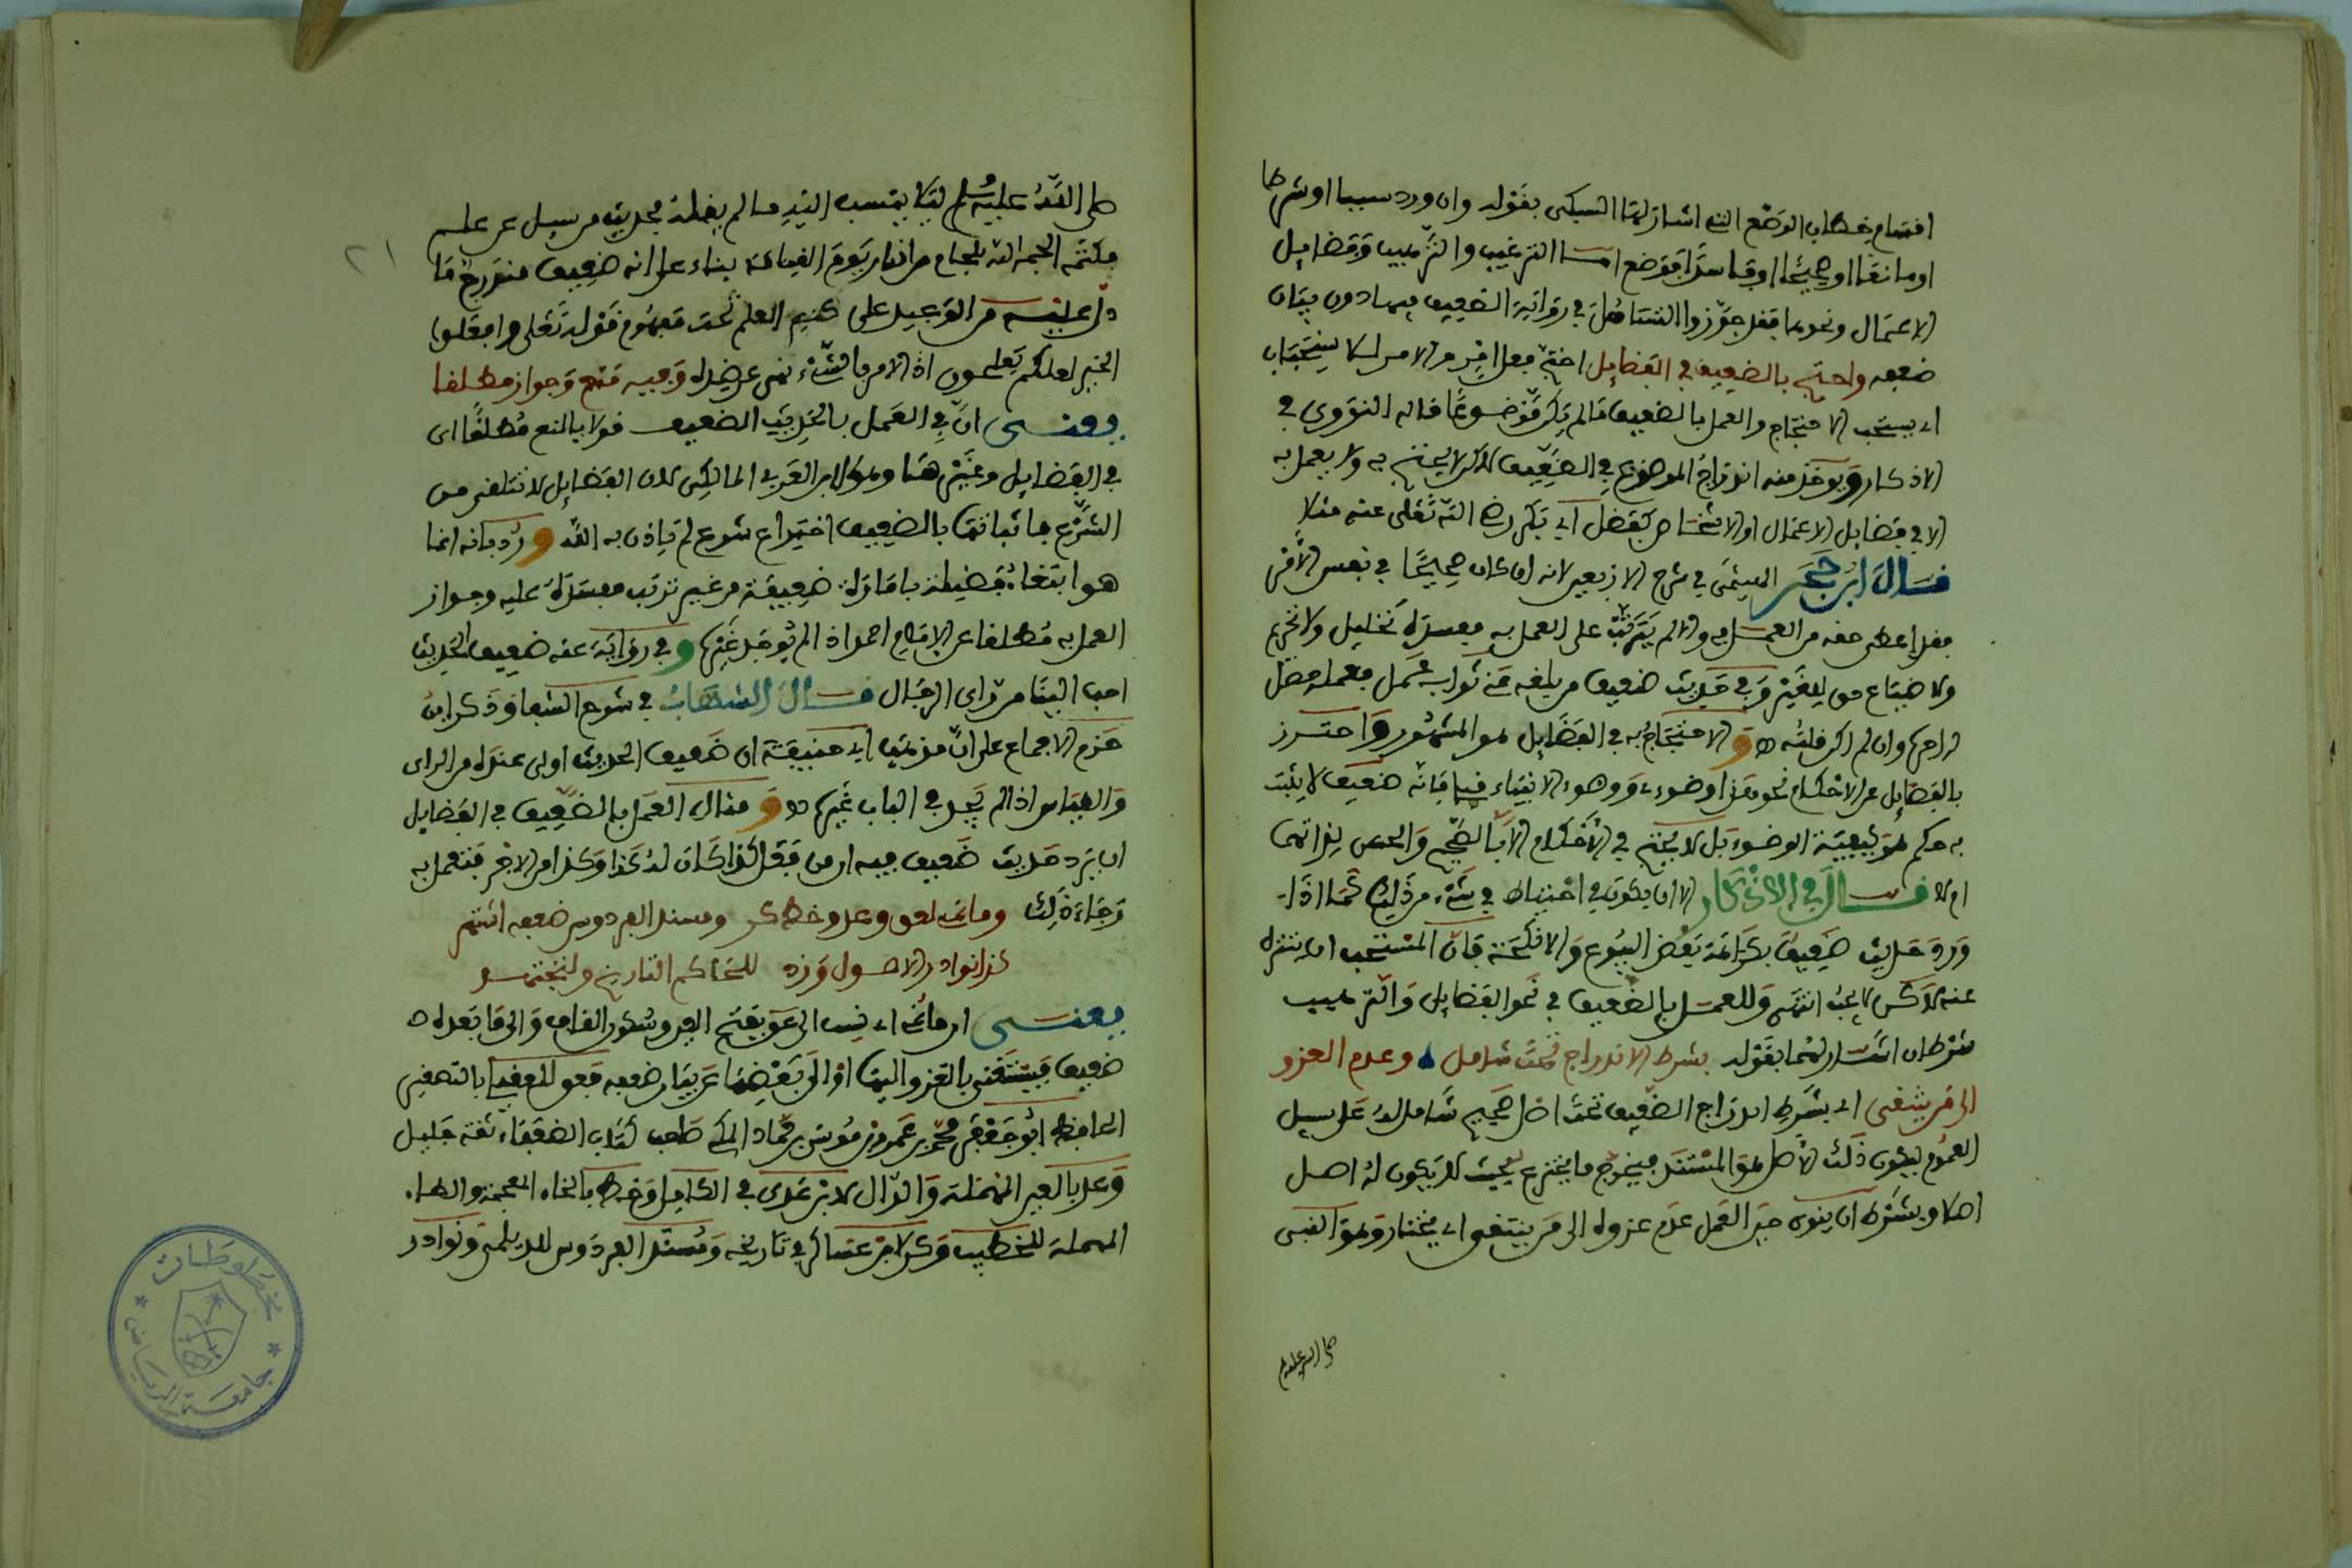 اقسام خطاب الوضع التى اشار لها السبكى بقوله وان ورد سببا او شرطا
او مانعا او صحيحا او فاسدا فوضع اما الترغيب والترهيب وفضايل
الاعمال ونحوها فقد جوزوا التساهل في رواية الضعيف فيها دون بيان
ضعفه واحتج بالضعيف في الفضايل احتج فعل امر والامر للاستحباب
اى يستحب الاحتجاج والعمل بالضعيف ما لم يكن موضوعا قاله النووى في
الاذكار ويوخذ منه اندراج الموضوع في الضعيف لاكن لا يحتج به ولا يعمل به
الا في فضايل الاعمال او الاشخاص كفضل ابي بكر رضي الله تعلى عنه مثلا
قال ابن حجر الهيتمى في شرح الاربعين لانه ان كان صحيحا في نفس الامر
فقد اعطى حقه من العمل به والا لم يترتب على العمل به مفسدة تحليل ولا تحريم
ولا ضياع حق للغير وفي حديث ضعيف من بلغه عني ثواب عمل فعمله حصل
له اجره وان لم اكن قلته اه و الاحتجاج به في الفضايل هو المشهور واحترز
بالفضايل عن الاحكام نحو هذا وضوءى ووضوء الانبياء قبلي فانه ضعيف لا يثبت
به حكم هو كيفية الوضوء بل لا يحتج في الاحكام الا بالصحيح والحسن لذاتهما
او لا قال في الاذكار الا ان يكون في احتياط في شىء من ذلك كما اذا
ورد حديث ضعيف بكراهة بعض البيوع والانكحة فان المستحب ان يتنزه
عنه لاكن لا يجب انتهى وللعمل بالضعيف في نحو الفضايل والترهيب
شرطان اشار لهما بقوله بشرط الاندراج تحت شامل وعدم العزو
الى من ينتقى اى بشرط اندراج الضعيف تحت اصل صحيح شامل له على سبيل
العموم ليكون ذلك الاصل هو المستند فيخرج ما يخترع بحيث لا يكون له اصل
اصلا وبشرط ان ينوى حين العمل عدم عزوه الى من ينتقى اى يختار وهو النبى
صلى الله عليه
صلى الله عليه وسلم ليلا ينسب اليه ما لم يقله فحديث من سيل عن علم
فكتمه الجمه الله بلجام من النار يوم القيامة بناء على انه ضعيف مندرج ما
دل عليه من الوعيد على كتم العلم تحت مفهوم قوله تعلى وافعلوا
الخير لعلكم تفلحون اذ الامر بالشىء نهى عن ضده وفيه منع وجواز مطلقا
يعنى ان في العمل بالحديث الضعيف قولا بالمنع مطلقا اى
في الفضايل وغيرها وهو لابن العربي المالكى لان الفضايل لا تتلقى من
الشرع فاثباتها بالضعيف اختراع شرع لم ياذن به الله و رد بانه انما
هو ابتغاء فضيلة بامارة ضعيفة من غير ترتب مفسدة عليه وجواز
العمل به مطلقا عن الامام احمد اذا لم يوجد غيره و في رواية عنه ضعيف الحديث
احب الينا من راى الرجال قال الشهاب في شرح الشفا وذكر ابن
حزم الاجماع على ان مذهب ابي حنيفة ان ضعيف الحديث اولى عنده من الراى
والقياس اذا لم يجد في الباب غيره اه و مثال العمل بالضعيف في الفضايل
ان يرد حديث ضعيف فيه ان من فعل كذا كان له كذا وكذا من الاجر فنعمل به
رجاء ذلك وما نمى لعق وعد وخط كر ومسند الفردوس ضعفه اشتهر
كذا نوادر الاصول وزد للحاكم التاريخ ولتجتهد
يعنى ان ما نمى اى نسب الى عق بفتح العين وسكون القاف والى ما بعده
ضعيف فيستغنى بالعزو اليها او الى بعضها عن بيان ضعفه فعق للعقيلى بالتصغير
الحافظ ابو جعفر محمد بن عمرو بن موسى بن حماد المكى صاحب كتاب الضعفاء ثقة جليل
وعد بالعين المهملة والدال لابن عدى في الكامل وخط بالخاء المعجمة والطاء
المهملة للخطيب وكر لابن عساكر في تاريخه ومسند الفردوس للديلمى ونوادر
٢١
مخطوطات
جامعة الرياض